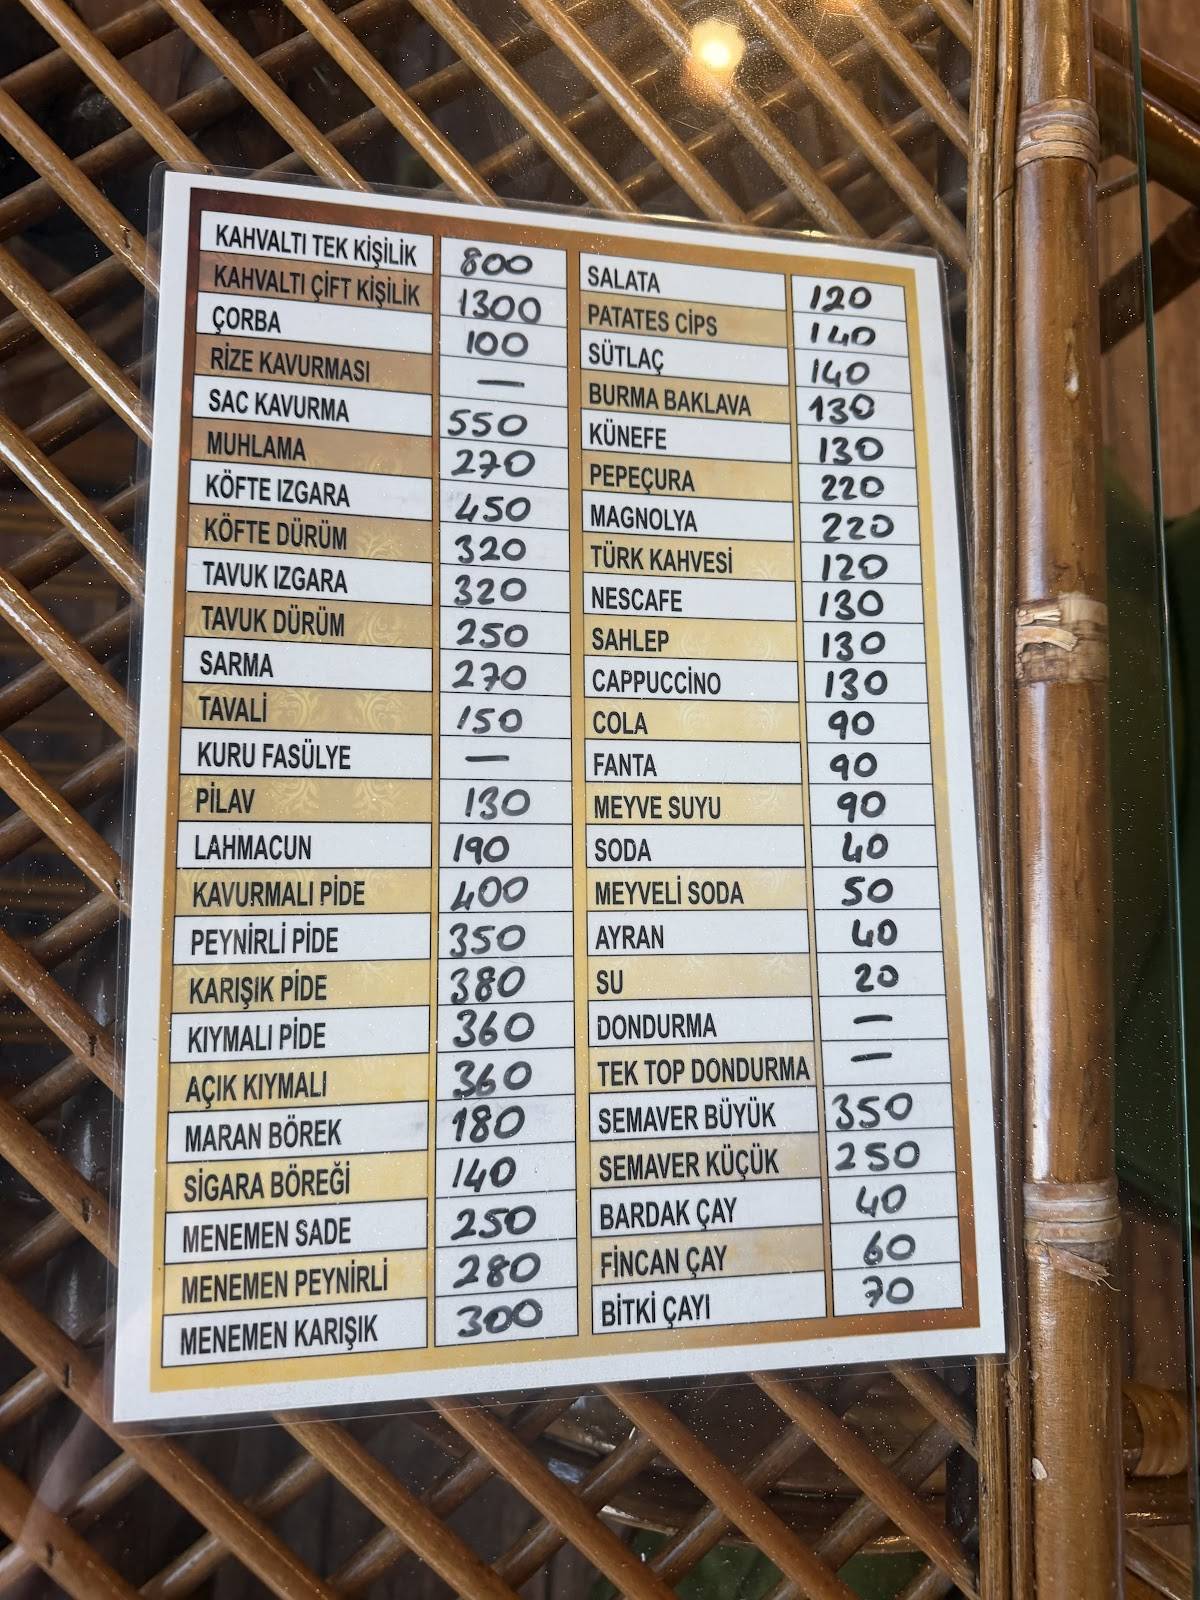 KAHVALTI TEK KİŞİLİK 800
KAHVALTI ÇİFT KİŞİLİK 1300
ÇORBA 100
RİZE KAVURMASI —
SAC KAVURMA 550
MUHLAMA 270
KÖFTE IZGARA 450
KÖFTE DÜRÜM 320
TAVUK IZGARA 320
TAVUK DÜRÜM 250
SARMA 270
TAVALİ 150
KURU FASÜLYE —
PİLAV 130
LAHMACUN 190
KAVURMALI PİDE 400
PEYNİRLİ PİDE 350
KARIŞIK PİDE 380
KIYMALI PİDE 360
AÇIK KIYMALI 360
MARAN BÖREK 180
SİGARA BÖREĞİ 140
MENEMEN SADE 250
MENEMEN PEYNİRLİ 280
MENEMEN KARIŞIK 300
SALATA 120
PATATES CİPS 140
SÜTLAÇ 140
BURMA BAKLAVA 130
KÜNEFE 130
PEPEÇURA 220
MAGNOLYA 220
TÜRK KAHVESİ 120
NESCAFE 130
SAHLEP 130
CAPPUCCİNO 130
COLA 90
FANTA 90
MEYVE SUYU 90
SODA 40
MEYVELİ SODA 50
AYRAN 40
SU 20
DONDURMA —
TEK TOP DONDURMA —
SEMAVER BÜYÜK 350
SEMAVER KÜÇÜK 250
BARDAK ÇAY 40
FİNCAN ÇAY 60
BİTKİ ÇAYI 70